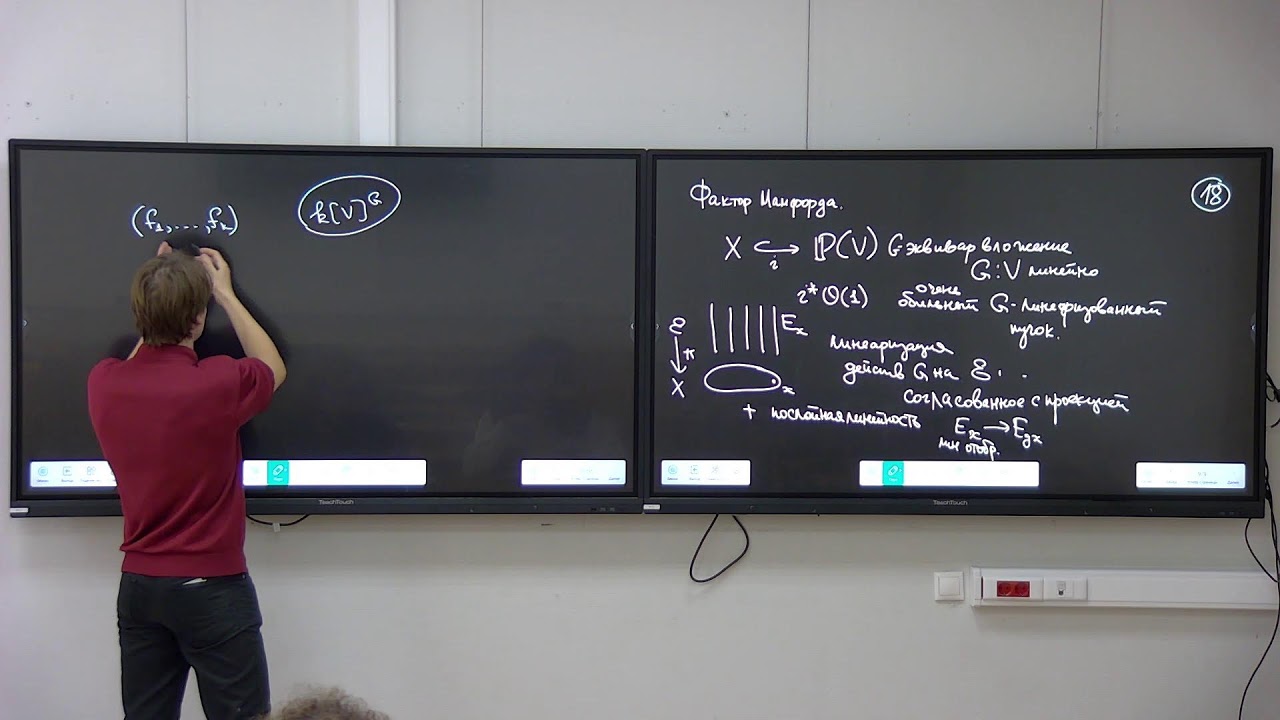 (f₁, ..., f₂) k[V]^G
Фактор Мамфорда. 18
X ↪ ℙ(V) G-эквивар вложение
i
G : V линейно
i* O(1) очень обильный G-линеаризованный
пучок.
ℰ E_x
π
X x
линеаризация
действ G на ℰ . .
согласованное с проекцией
+ послойная линейность E_x → E_gx
лин отобр.
TeachTouch TeachTouch